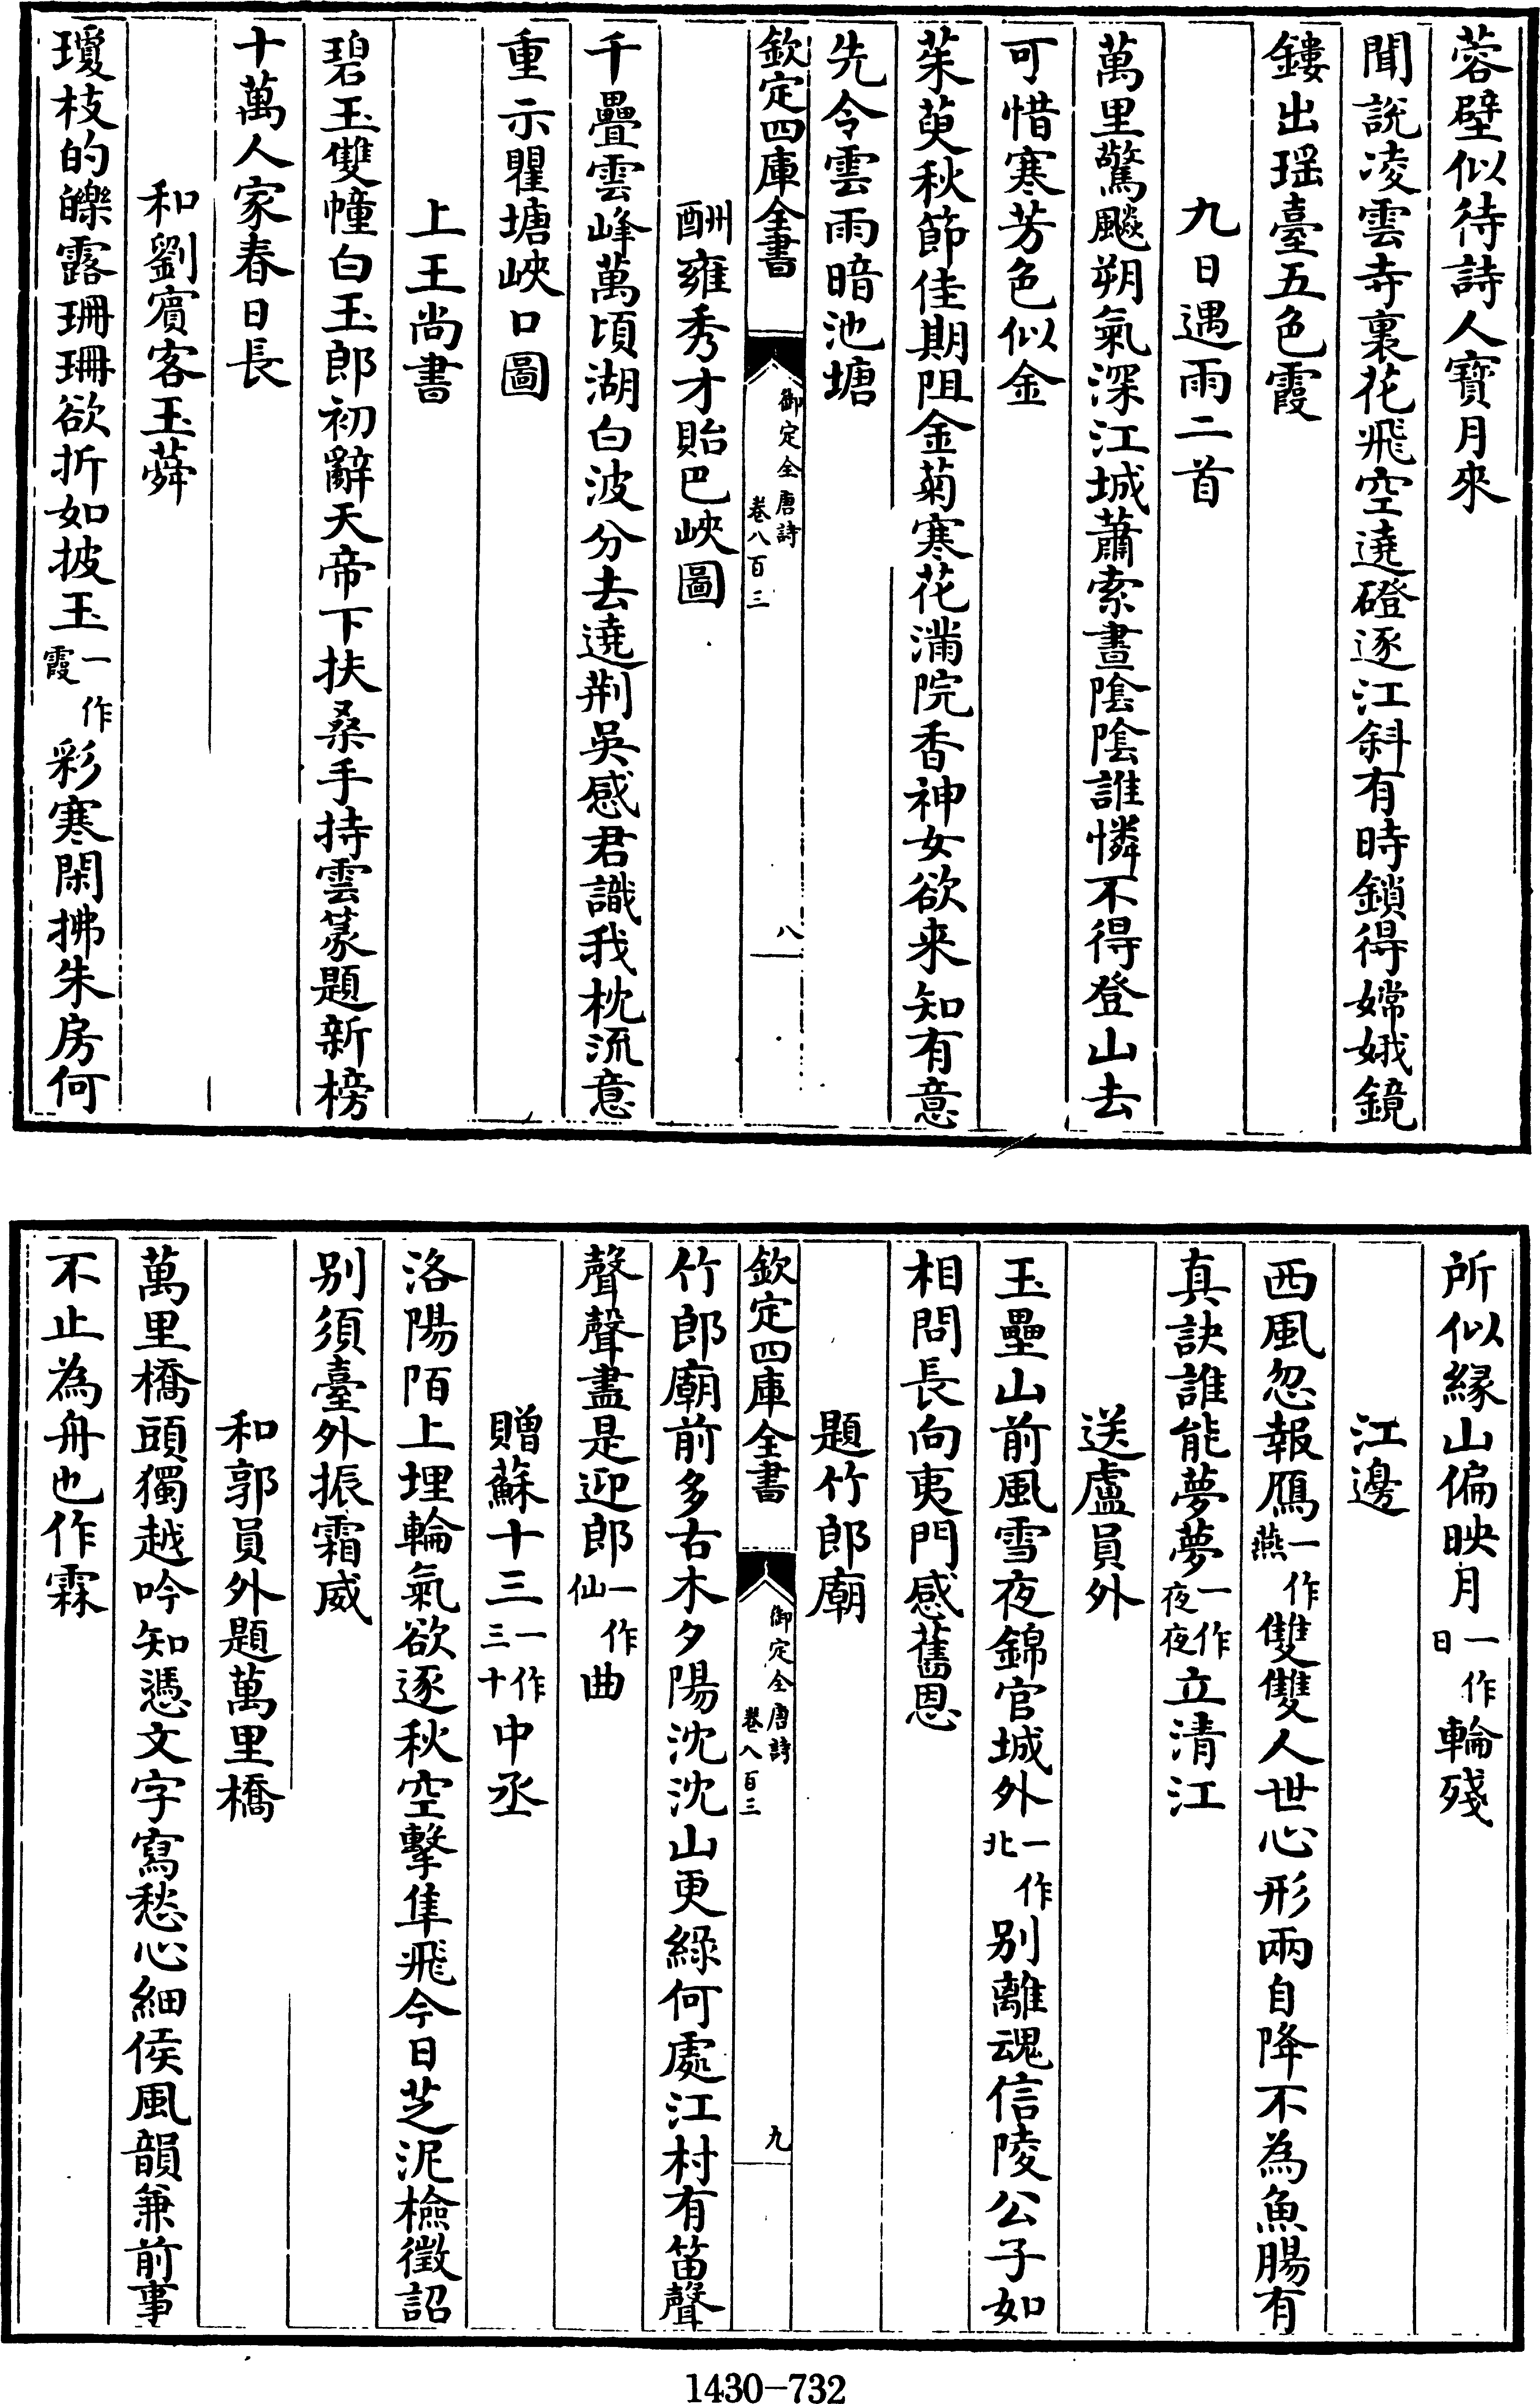 蓉壁似待詩人寳月來
聞說凌雲寺裏花飛空遶磴逐江斜有時鎖得嫦娥鏡
鏤出瑶臺五色霞
九日遇雨二首
萬里驚飈朔氣深江城蕭索晝陰陰誰憐不得登山去
可惜寒芳色似金
茱萸秋節佳期阻金菊寒花滿院香神女欲来知有意
先令雲雨暗池塘
欽定四庫全書 御定全唐詩 卷八百三 八
酬雍秀才貽巴峽圖
千疊雲峰萬頃湖白波分去遶荆吳感君識我枕流意
重示瞿塘峽口圖
上王尚書
碧玉雙幢白玉郎初辭天帝下扶桑手持雲篆題新榜
十萬人家春日長
和劉賓客玉蕣
瓊枝的皪露珊珊欲折如披玉一作霞彩寒閑拂朱房何
所似緣山偏映月一作日輪殘
江邊
西風忽報鴈一作燕雙雙人世心形兩自降不為魚腸有
真訣誰能夢夢一作夜夜立清江
送盧員外
玉壘山前風雪夜錦官城外一作北别離魂信陵公子如
相問長向夷門感舊恩
題竹郎廟
欽定四庫全書 御定全唐詩 卷八百三 九
竹郎廟前多古木夕陽沈沈山更綠何處江村有笛聲
聲聲盡是迎郎一作仙曲
贈蘇十三一作三十中丞
洛陽陌上埋輪氣欲逐秋空擊隼飛今日芝泥檢徵詔
别須臺外振霜威
和郭員外題萬里橋
萬里橋頭獨越吟知憑文字寫愁心細侯風韻兼前事
不止為舟也作霖
1430-732